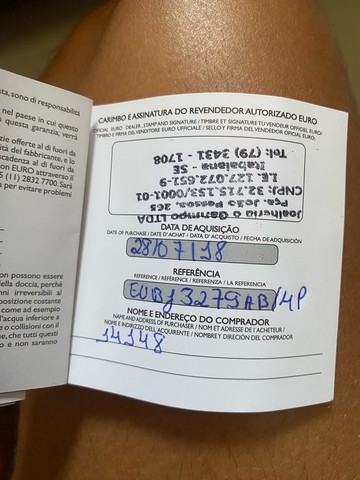 sta, sono di responsabilità
nel paese in cui questo
questa garanzia, verrà
zie offerte al di fuori da
ità del fabbricante, e lo
scadenza al di fuori da
on EURO attraverso il
5 (11) 2832 7700. Sarà
per evitare problemi
on possono essere
della doccia, perché
nni irreversibili al
posizione costante
come ad esempio
l'acqua inferiore a
o collisioni con il
ne, che tutti questi
o e non saranno
CARIMBO E ASSINATURA DO REVENDEDOR AUTORIZADO EURO
OFICIAL EURO DEALER, STAMP AND SIGNATURE / TIMBRE ET SIGNATURE TU VENDEUR OFFICIEL EURO/
TIMBRO E FIRMA DEL VENDITORE EURO UFFICIALE / SELLO Y FIRMA DEL VENDEDOR OFICIAL EURO;
Joalheria o Garimpo LTDA
Pça. João Pessoa, 265
CNPJ: 32.715.153/0001-01
I.E. 127.072.651-9
Itabaiana - SE
Tel: (79) 3431 - 1708
DATA DE AQUISIÇÃO
DATE OF PURCHASE / DATE D'ACHAT / DATA D'ACQUISTO / FECHA DE ADQUISICIÓN
28/07/18
REFERÊNCIA
REFERENCE / RÉFÉRENCE / REFERENZA / LA REFERENCIA
EUBJ3279AB/4P
NOME E ENDEREÇO DO COMPRADOR
NAME AND ADDRESS OF PURCHASER / NOM ET ADRESSE DE L'ACHETEUR /
NOME E INDIRIZZO DELL'ACQUIRENTE / NOMBRE Y DIRECIÓN DEL COMPRADOR
14148